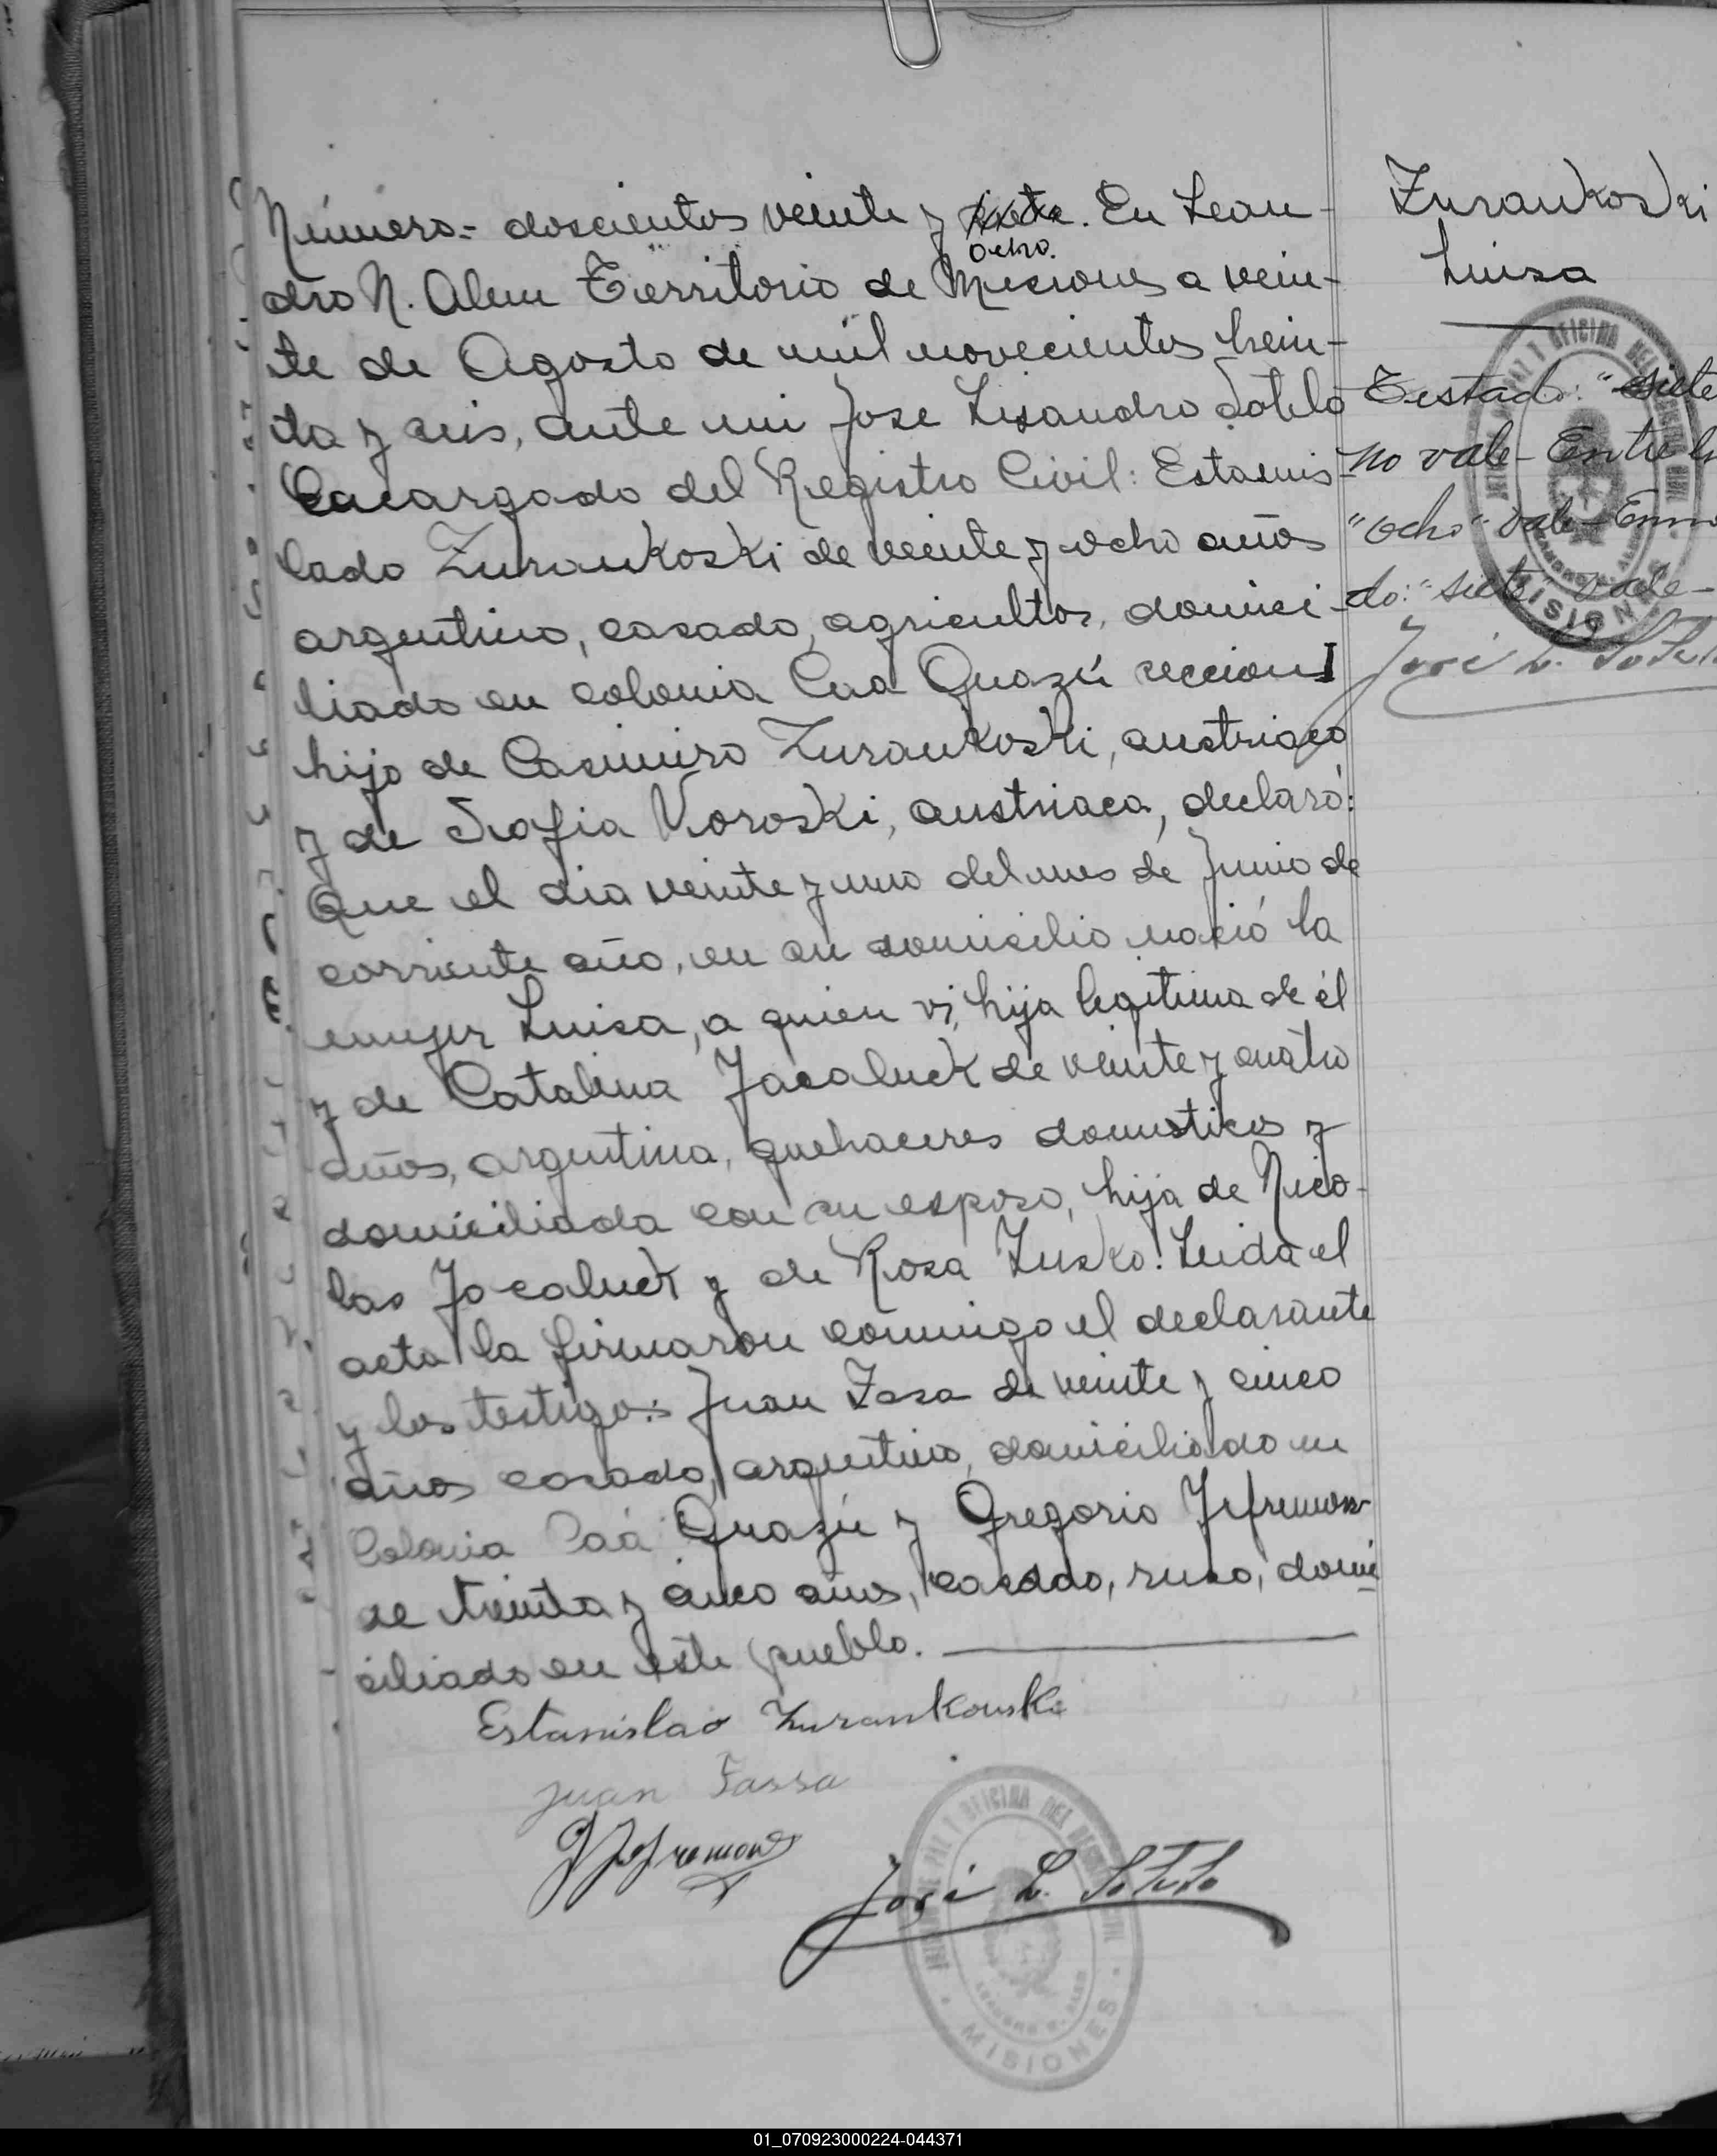 Zurankoski
Luisa
Número.- doscientos veinte y siete. En Lean-
ocho.
dro N. Alem Territorio de Misiones a vein-
te de Agosto de mil novecientos trein-
ta y seis, ante mi Jose Lisandro Sotelo
Encargado del Registro Civil: Estanis-
lado Zurankoski de veinte y ocho años
argentino, casado, agricultor, domici-
liado en colonia Caa Guazú seccion I
hijo de Casimiro Zurankoski, austriaco
y de Sofia Voroski, austriaca, declaró:
Que el dia veinte y uno del mes de Junio de
corriente año, en su domicilio nació la
mujer Luisa, a quien vi, hija legitima de él
y de Catalina Jacaluck de veinte y cuatro
años, argentina, quehaceres domesticos y
domiciliada con su esposo, hija de Nico-
las Jacaluck y de Rosa Zusko. Leida el
acta la firmaron conmigo el declarante
y los testigos: Juan Zasa de veinte y cinco
años casado, argentino, domiciliado en
Colonia Caá Guazú y Gregorio Jefremow
de treinta y cinco años, casado, ruso, domi
ciliado en este pueblo.
Testado: "siete
no vale- Entre li
"ocho" vale- Enm
do: "siete" vale-
José L. Sotelo
Estanislao Zurankouski
Juan Sassa
G Jefremow
José L. Sotelo
OFICINA DEL REGISTRO CIVIL
MISIONES
01_070923000224-044371